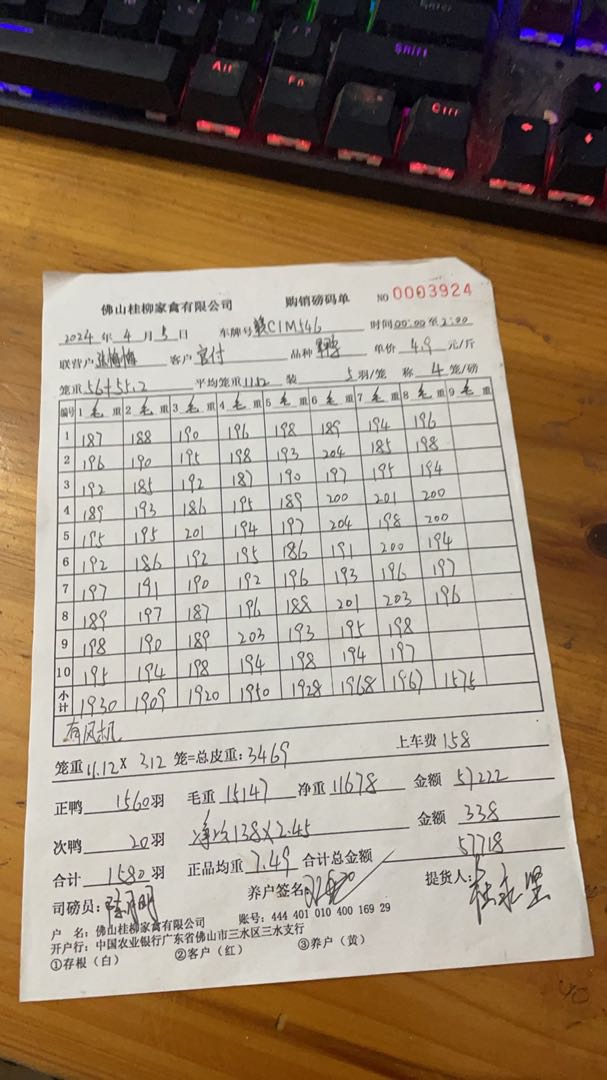 Alt
Fn
Shift
Ctrl
佛山桂柳家禽有限公司 购销磅码单 NO 0003924
2024 年 4 月 5 日 车牌号 赣C1M546 时间 00:00 至 2:00
联营户 客户 官付 品种 单价 4.9 元/斤
笼重 56+55.2 平均笼重 11.12 装 5 羽/笼 称 4 笼/磅
编号 1 毛 重 2 毛 重 3 毛 重 4 毛 重 5 毛 重 6 毛 重 7 毛 重 8 毛 重 9 毛 重
1 187 188 190 196 198 189 194 196
2 196 190 195 198 193 204 185 198
3 192 185 192 187 190 197 195 194
4 189 193 186 195 189 200 201 200
5 195 195 201 194 197 204 198 200
6 192 186 192 195 186 191 200 194
7 197 191 190 192 196 193 196 197
8 189 197 187 196 188 201 203 196
9 198 190 189 203 193 195 198
10 195 194 198 194 198 194 197
小计 1930 1909 1920 1950 1928 1968 1967 1575
有风机
笼重 11.12 × 312 笼=总皮重: 3469 上车费 158
正鸭 1560 羽 毛重 15147 净重 11678 金额 57222
次鸭 20 羽 净鸡138×2.45 金额 338
合计 1580 羽 正品均重 7.49 合计总金额 57718
司磅员: 养户签名 提货人:
户 名: 佛山桂柳家禽有限公司 账号: 444 401 010 400 169 29
开户行: 中国农业银行广东省佛山市三水区三水支行
①存根（白） ②客户（红） ③养户（黄）